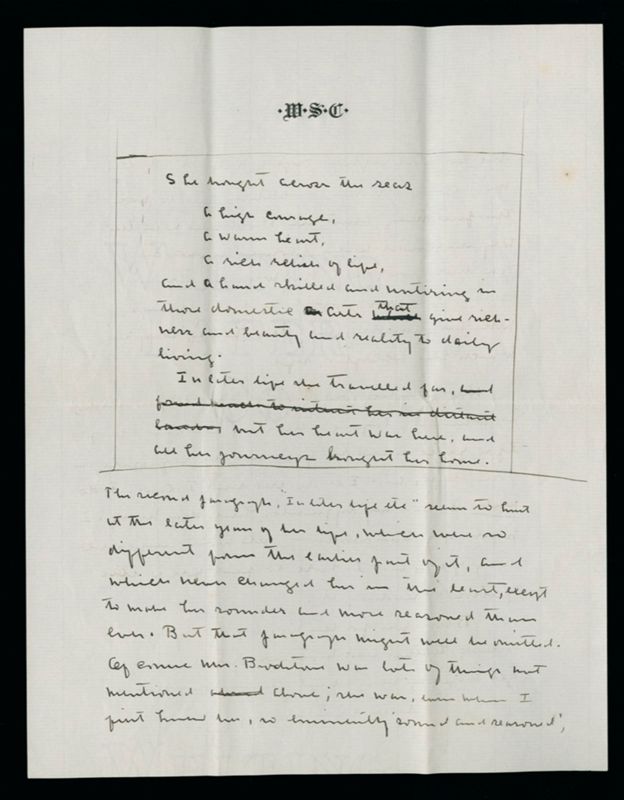 ·W·S·C·
She brought across the seas
a high courage,
a warm heart,
a rich relish of life,
and a hand skilled and untiring in
those domestic arts that give rich-
ness and beauty and reality to daily
living.
In later life she travelled far, and
found much to interest her in distant
but her heart was here, and
all her journeys brought her home.
The second paragraph, "In later life etc" seems to hint
at the later years of her life, which were so
different from the earlier part of it, and
which never changed her in the least, except
to make her sounder and more seasoned than
ever. But that paragraph might well be omitted.
Of course Mrs. was lots of things not
mentioned above; she was, even when I
first knew her, so eminently 'sound and seasoned',